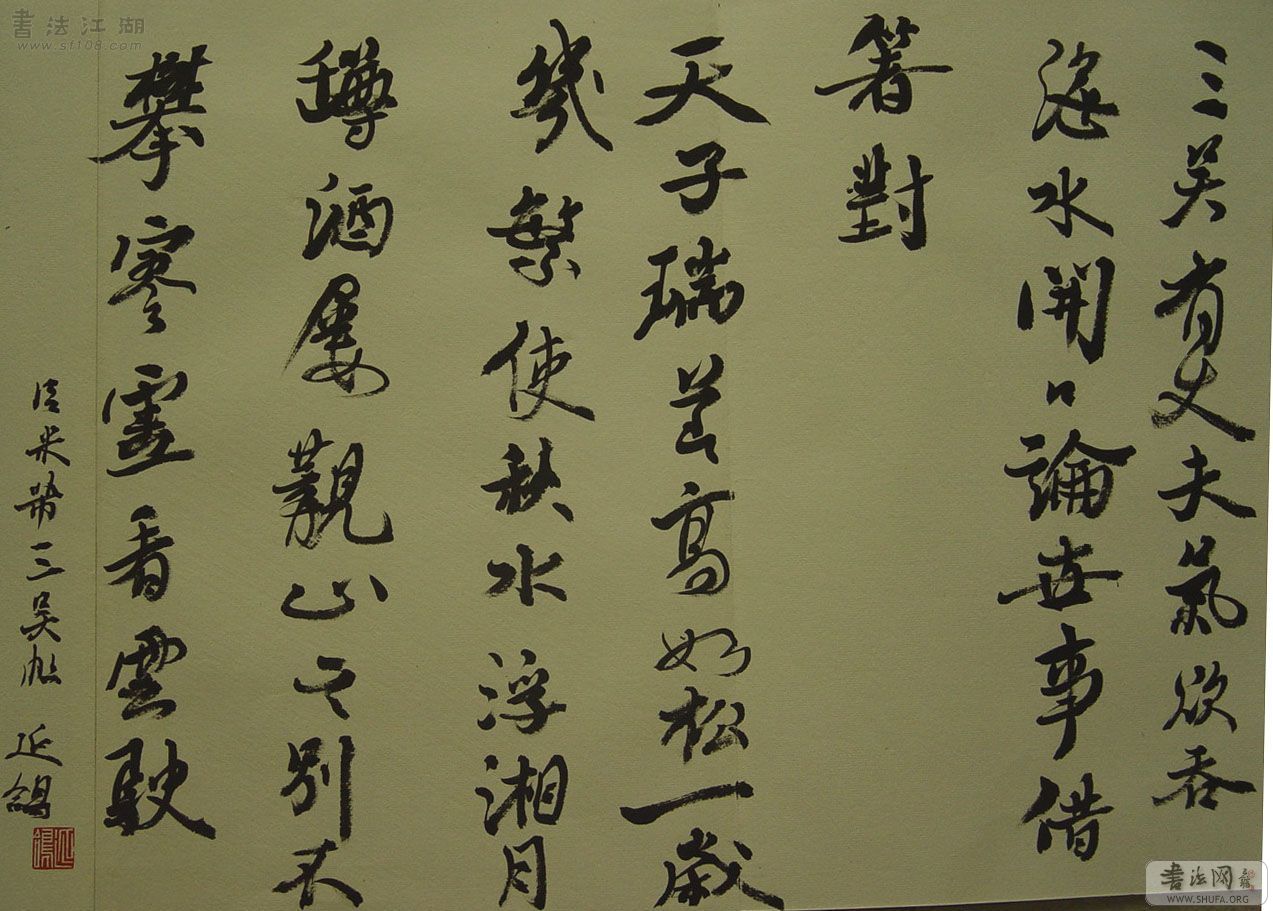 書法江湖
www.sf108.com
三吴有丈夫氣欲吞
水開口論世事借
箸對
天子瑞高如松一歲
幾繁使秋水浮湘月
罇酒屢觀山之別不
攀寥靈看雲駛
临米芾三吴帖 延
書法网
WWW.SHUFA.ORG